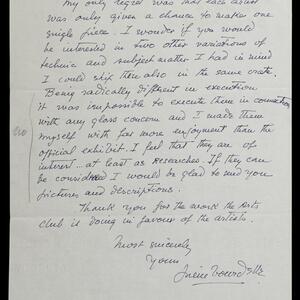 My only regret was that each artist
was only given a chance to make one
single piece. I wonder if you would
be interested in two other variations of
technic and subject matter I had in mind
I could ship then also in the same crate.
Being radically different in execution
it was impossible to execute them in connection
with any glass concern and I made them
myself with far more enjoyment than the
official exhibit. I feel that they are of
interest... at least as researches. If they can
be considered I would be glad to send you
pictures and descriptions.
Thank you for the work the Arts
club is doing in favour of the artists.
Most sincerely
Yours